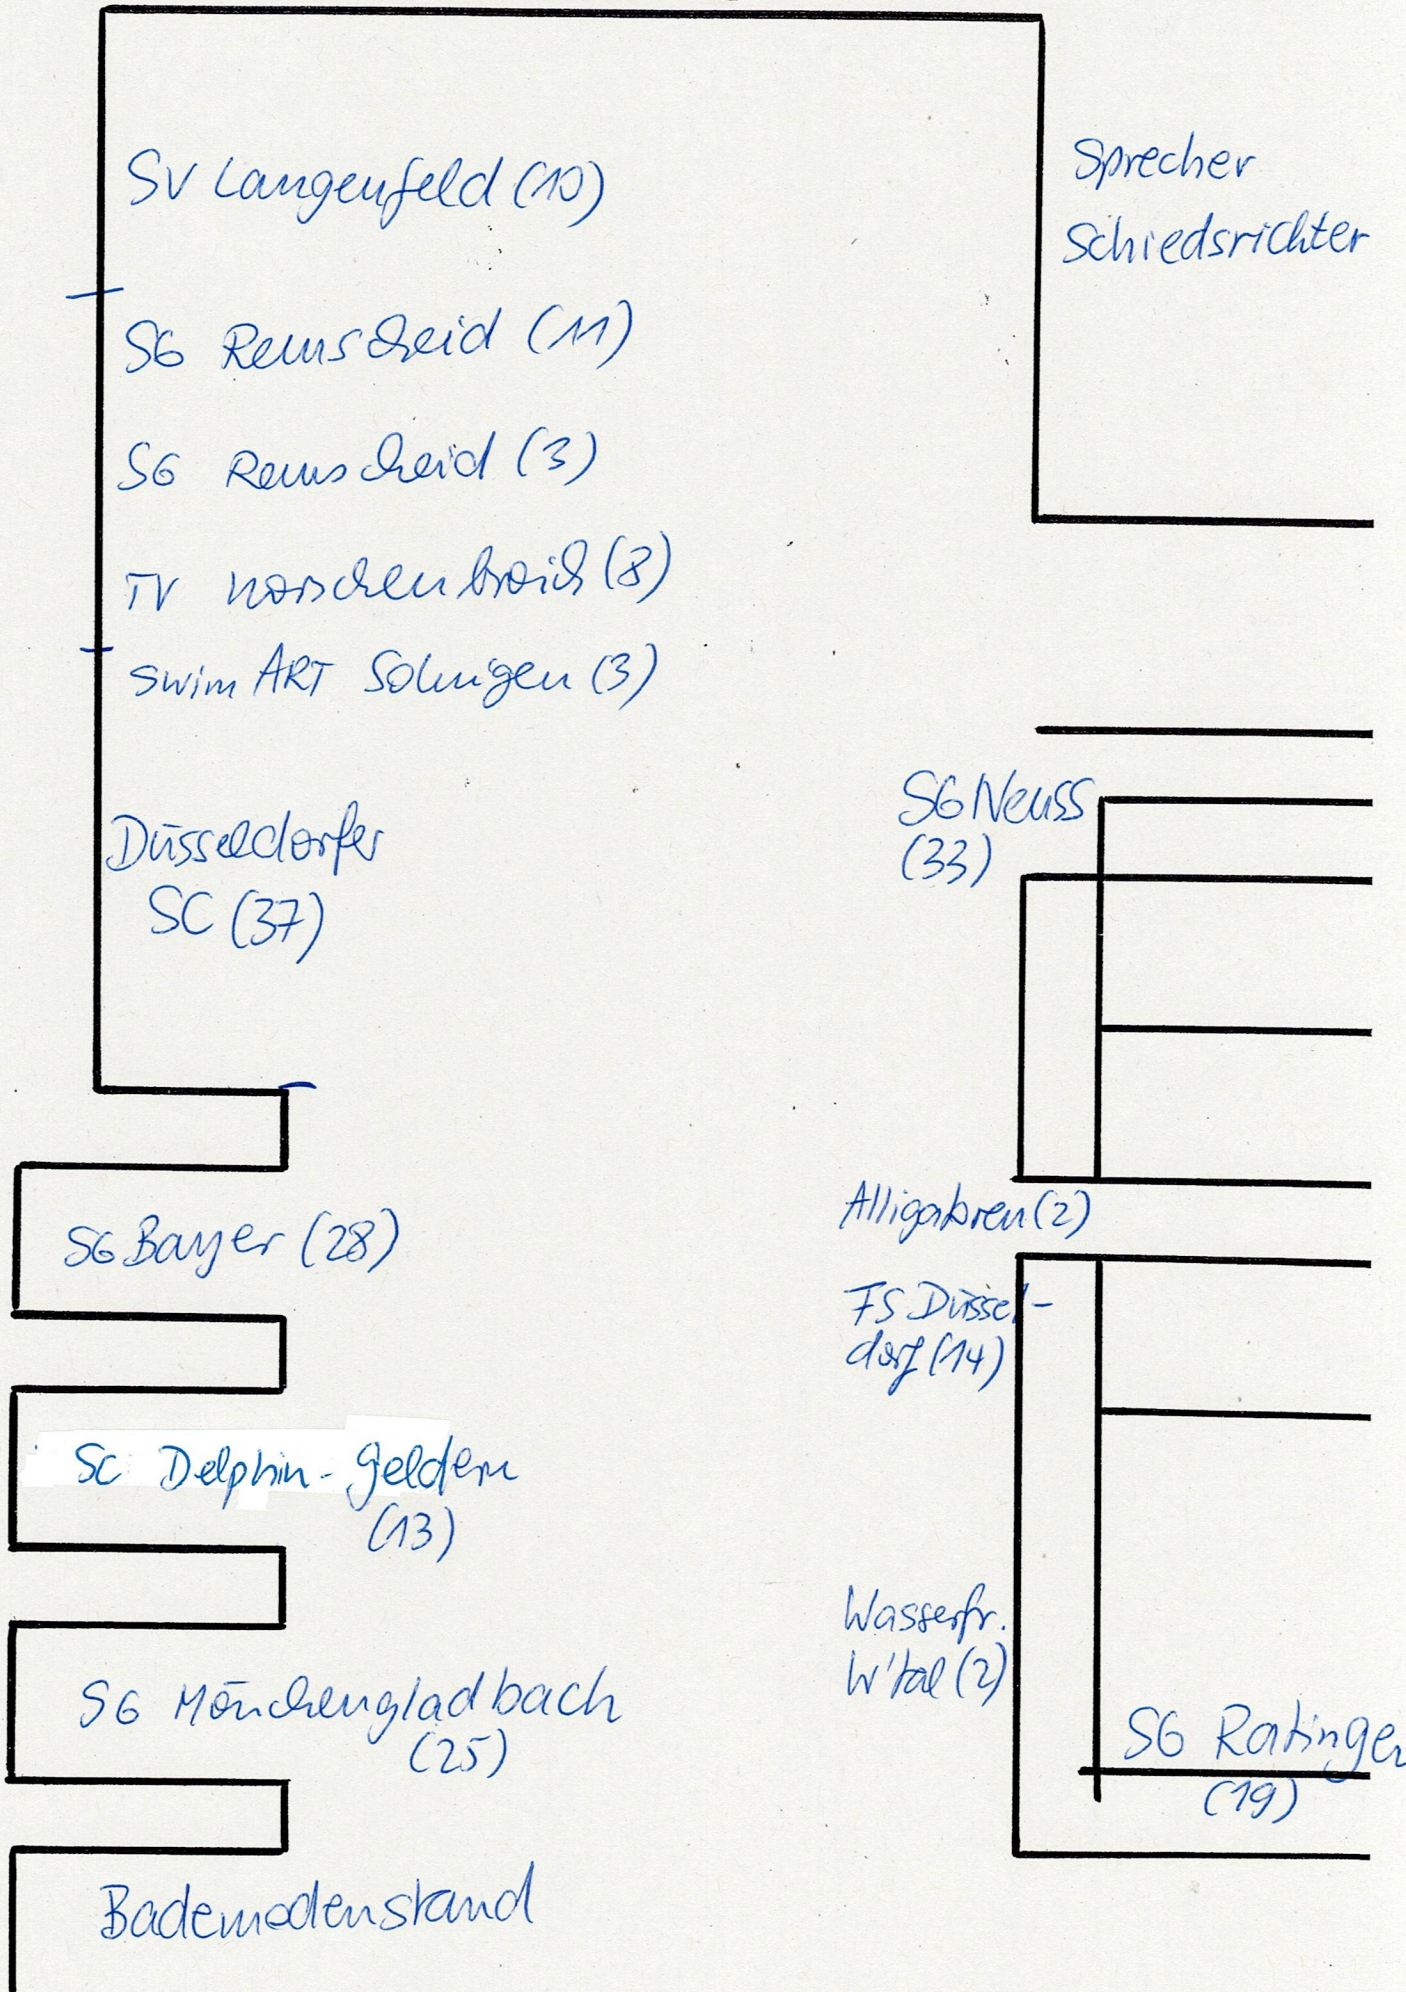 SV Langenfeld (10)
SG Remscheid (11)
SG Remscheid (3)
TV Korschenbroich (8)
Swim ART Solingen (3)
Düsseldorfer
SC (37)
SG Bayer (28)
SC Delphin-Geldern
(13)
SG Mönchengladbach
(25)
Bademodenstand
Sprecher
Schiedsrichter
SG Neuss
(33)
Alligatoren (2)
FS Düssel-
dorf (14)
Wasserfr.
W'tal (2)
SG Ratingen
(19)